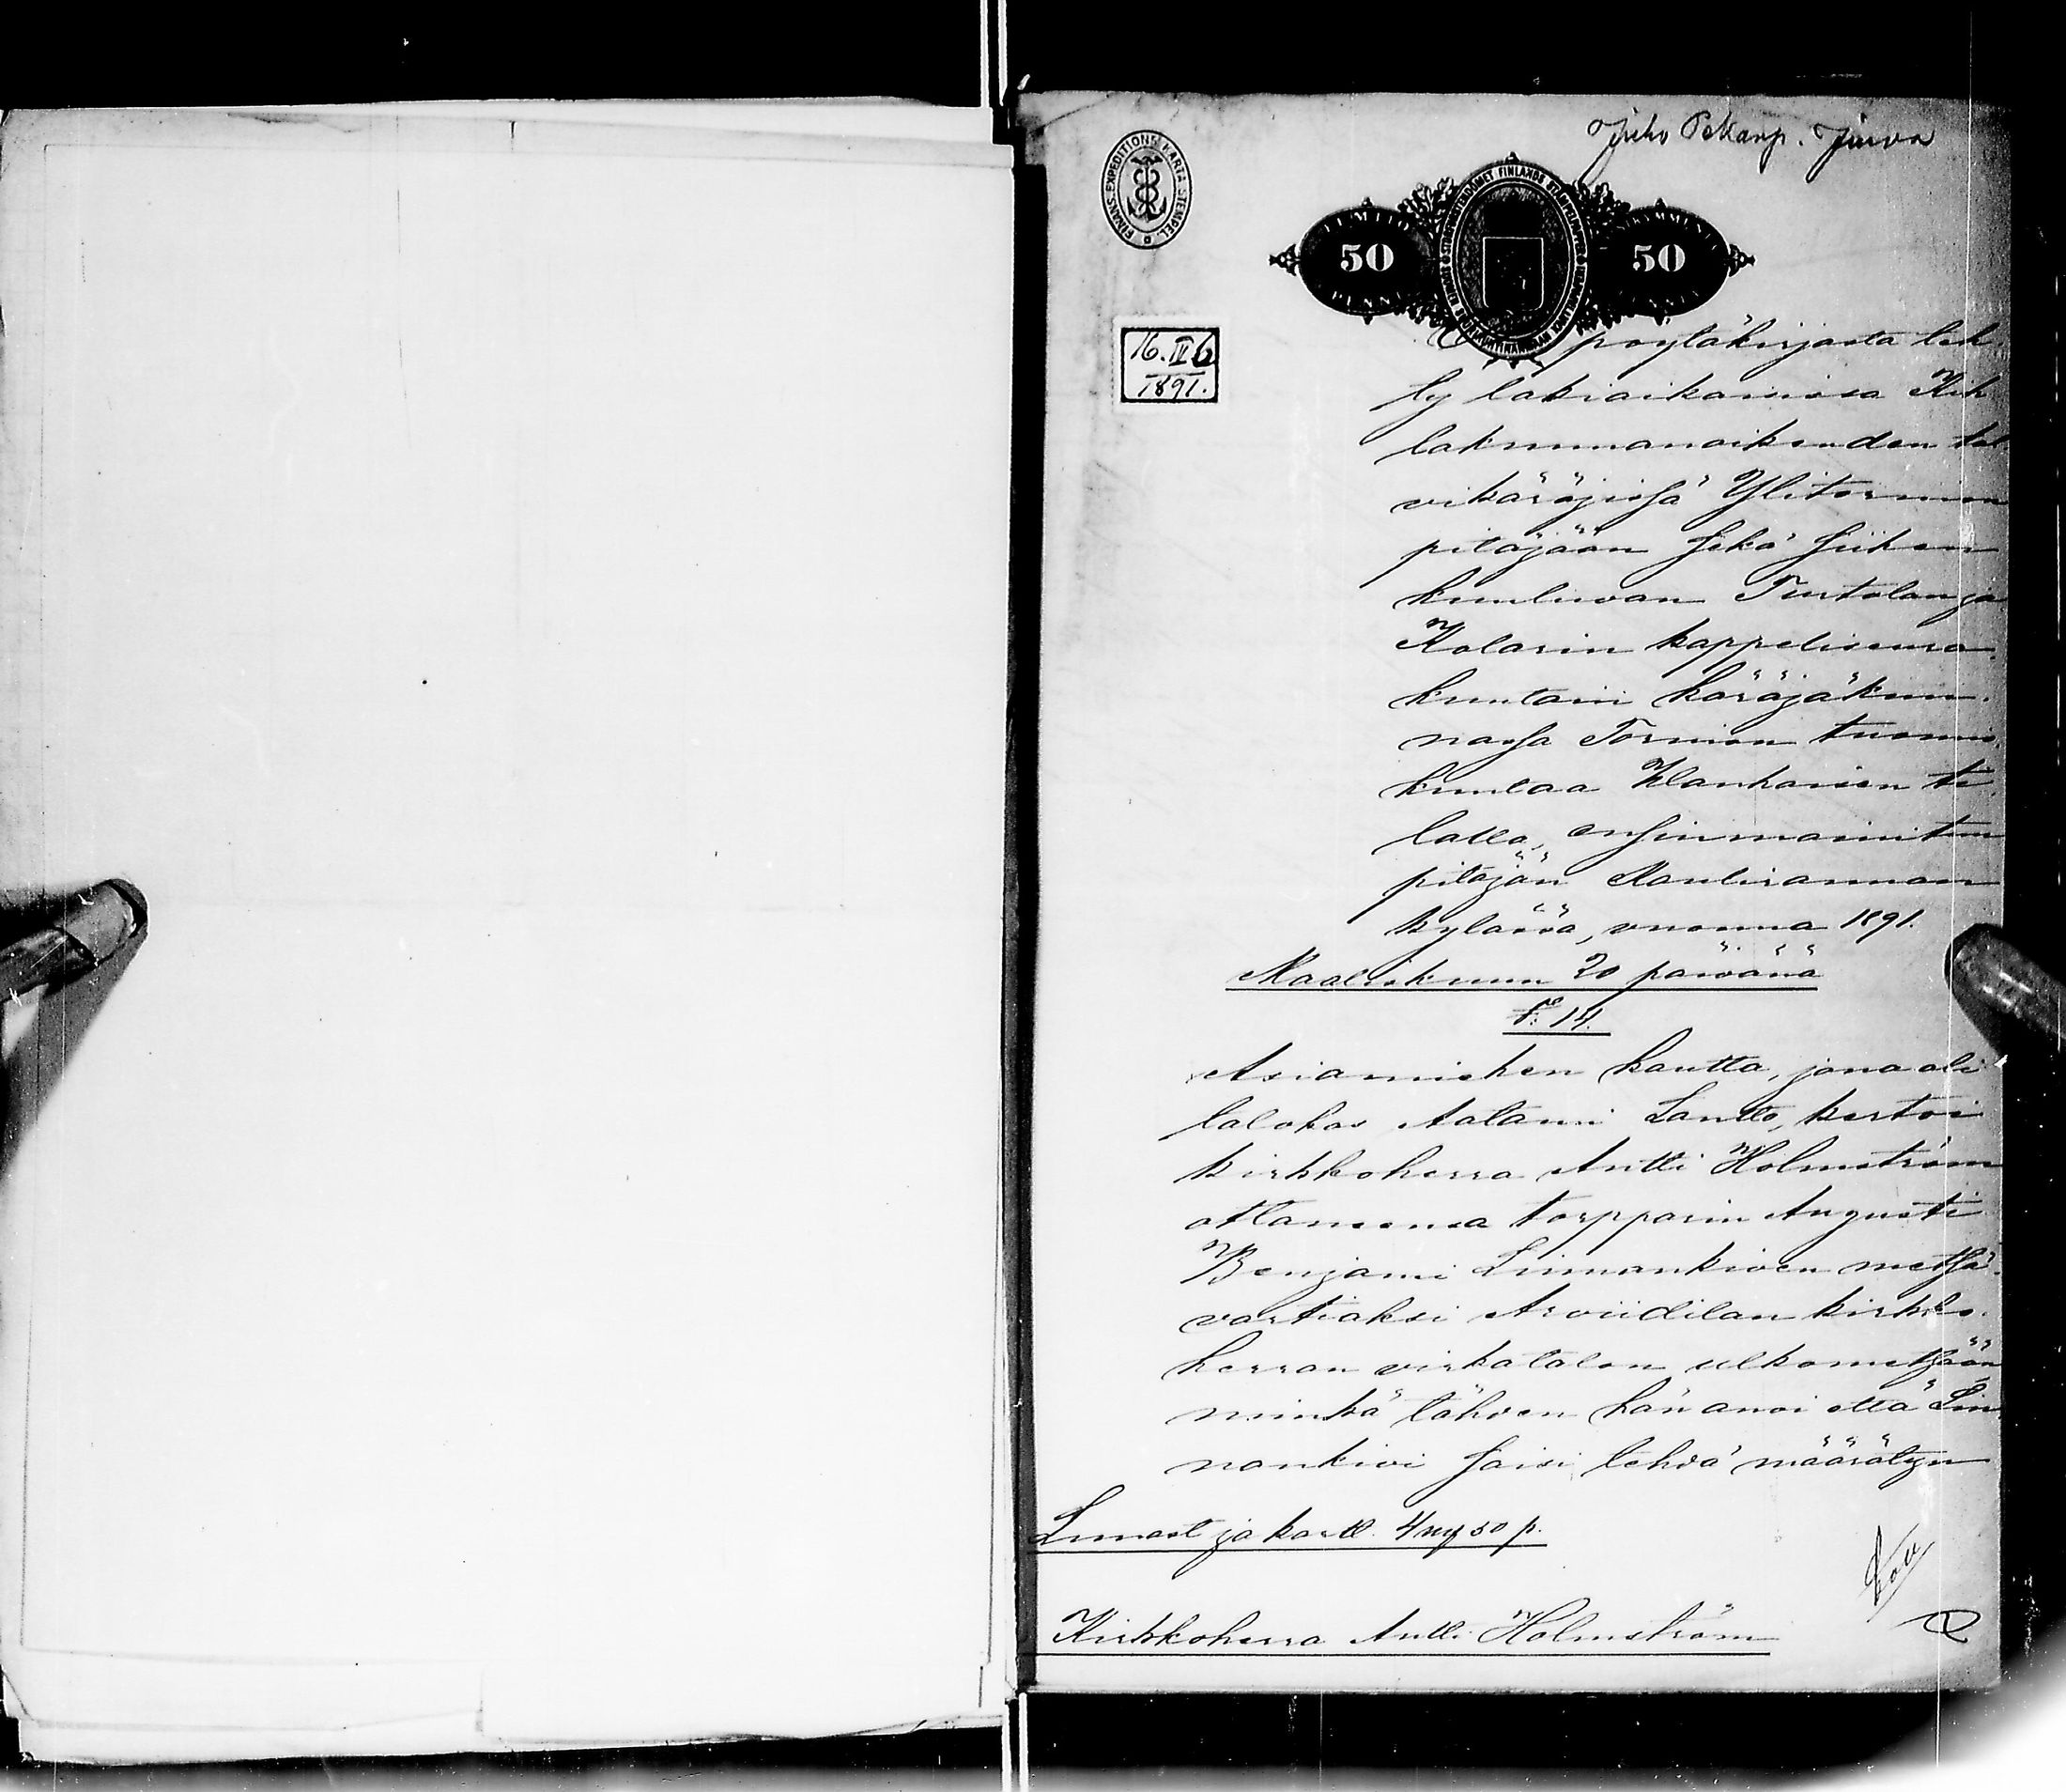 Juho Pekanp. Juva
FINANS-EXPEDITIONS KARTA STEMPEL
50 50
PENNIÄ
16. IV b
1891.
pöytäkirjasta teh
ty lakiaikaisissa
lakunnanoikeuden tal
vikäräjissä Ylitornion
pitäjään sekä siihen
kuuluvan Turtolan ja
Kolarin kappeliseura
kuntain käräjäkun
nassa Tornion tuomio
kuntaa Klanhaisen ti
lalla, ensinmainitun
pitäjän Kauliranman
kylässä, vuonna 1891.
Maaliskuun 20 päivänä
§: 14.
Asiamiehen kautta, jona oli
lalokas Aatami Lantto, kertoi
kirkkoherra Antti Holmström
ottaneensa torpparin Augusti
Benjami Linnankiven metsä
vartiaksi Arviidilan kirkko
herran virkatalon ulkometsään,
minkä tähden hän anoi että Lin
nankivi saisi tehdä määrätyn
Lunast ja kartt. 4 m 50 p.
Kirkkoherra Antti Holmström